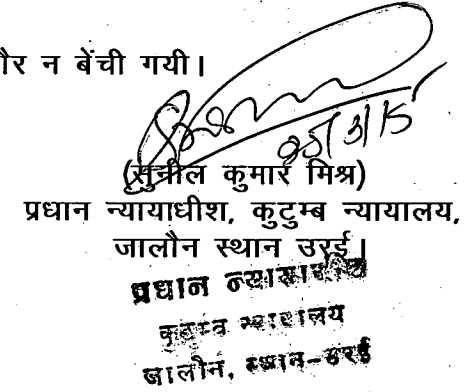 और न बेंची गयी।
25/3/15
(सुनील कुमार मिश्र)
प्रधान न्यायाधीश, कुटुम्ब न्यायालय,
जालौन स्थान उरई।
प्रधान न्यायाधीश
कुटुम्ब न्यायालय
जालौन, स्थान-उरई